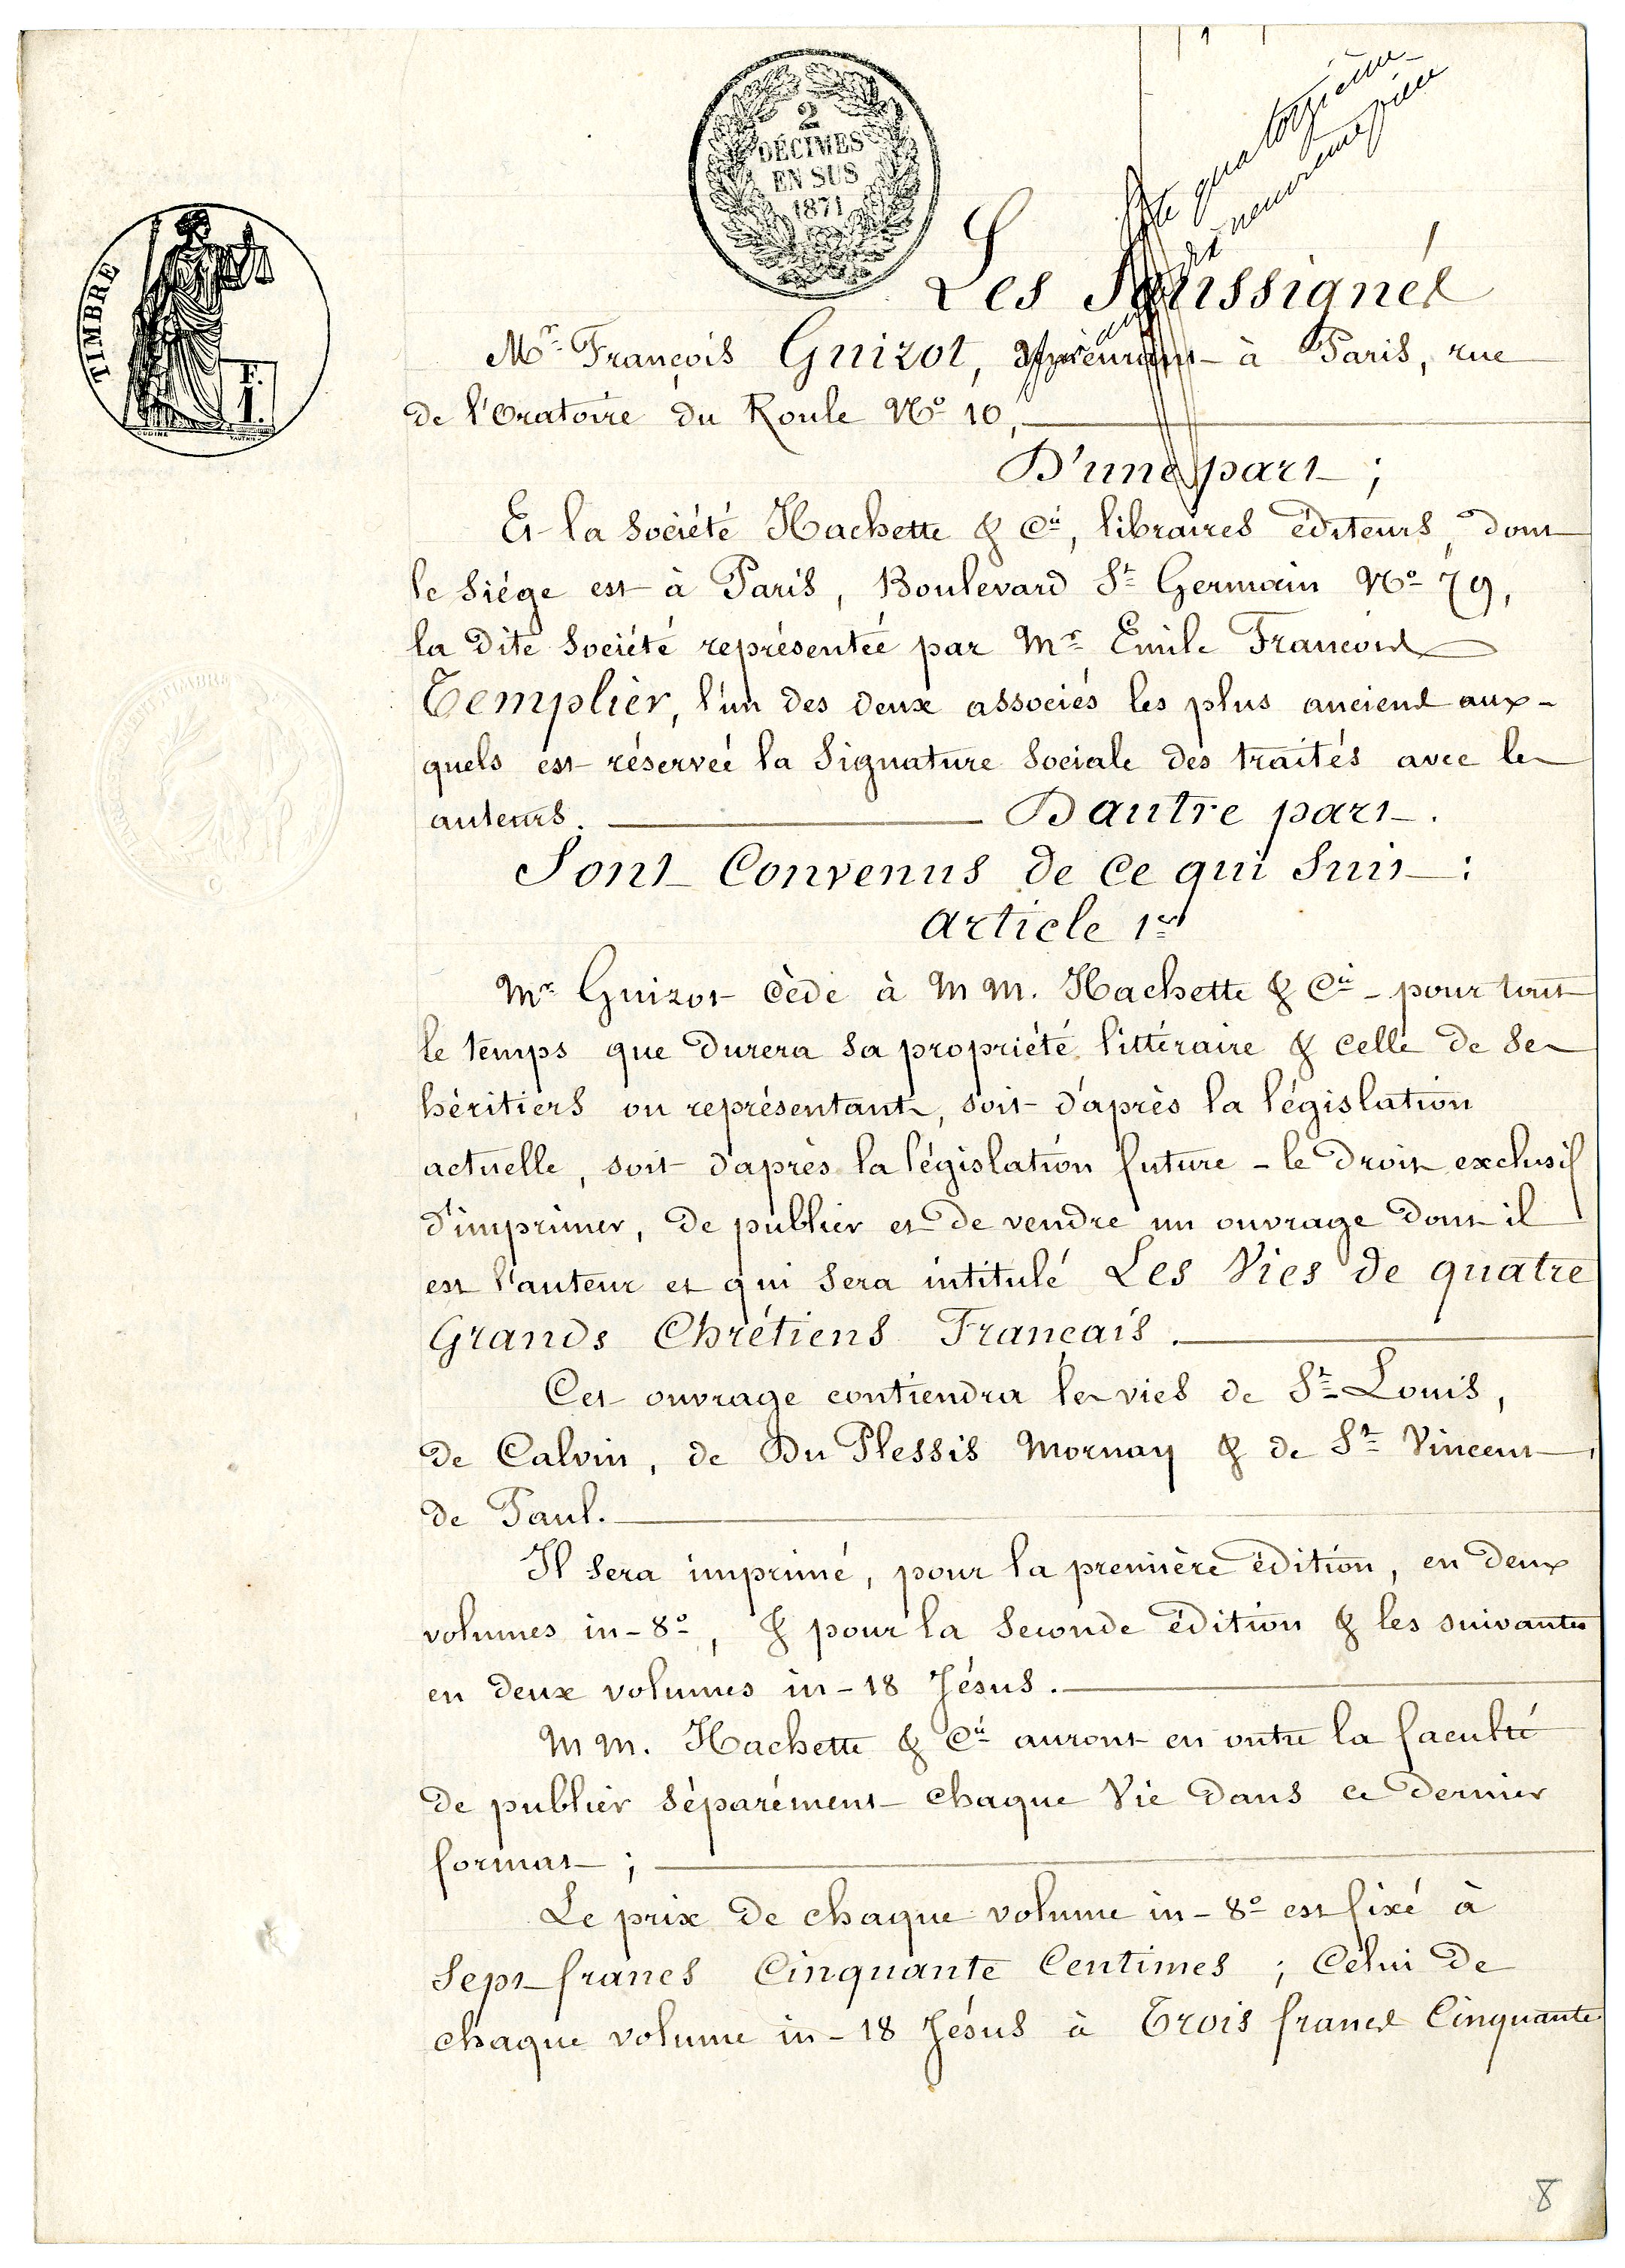 2
DÉCIMES
EN SUS
1871
TIMBRE
F.
1.
Cote quatorzième
dix neuvième pièce
Les Soussignés
Mr François Guizot, demeurant à Paris, rue
de l'Oratoire du Roule No 10,
D'une part ;
Et la société Hachette & Cie, libraires éditeurs, dont
le siége est à Paris, Boulevard St Germain No 79,
la dite société représentée par Mr Emile François
Templier, l'un des deux associés les plus anciens aux-
quels est réservée la signature sociale des traités avec les
auteurs. D'autre part.
Sont Convenus de ce qui suit :
Article 1er
Mr Guizot cède à MM. Hachette & Cie - pour tout
le temps que durera sa propriété littéraire & celle de ses
héritiers ou représentants, soit d'après la législation
actuelle, soit d'après la législation future - le droit exclusif
d'imprimer, de publier et de vendre un ouvrage dont il
est l'auteur et qui sera intitulé Les Vies de quatre
Grands Chrétiens Français.
Cet ouvrage contiendra les vies de St Louis,
de Calvin, de Du Plessis Mornay & de St Vincent
de Paul.
Il sera imprimé, pour la première édition, en deux
volumes in-8o, & pour la seconde édition & les suivantes
en deux volumes in-18 Jésus.
MM. Hachette & Cie auront en outre la faculté
de publier séparément chaque Vie dans ce dernier
format ;
Le prix de chaque volume in-8o est fixé à
Sept francs Cinquante Centimes ; Celui de
chaque volume in-18 Jésus à Trois francs Cinquante
8